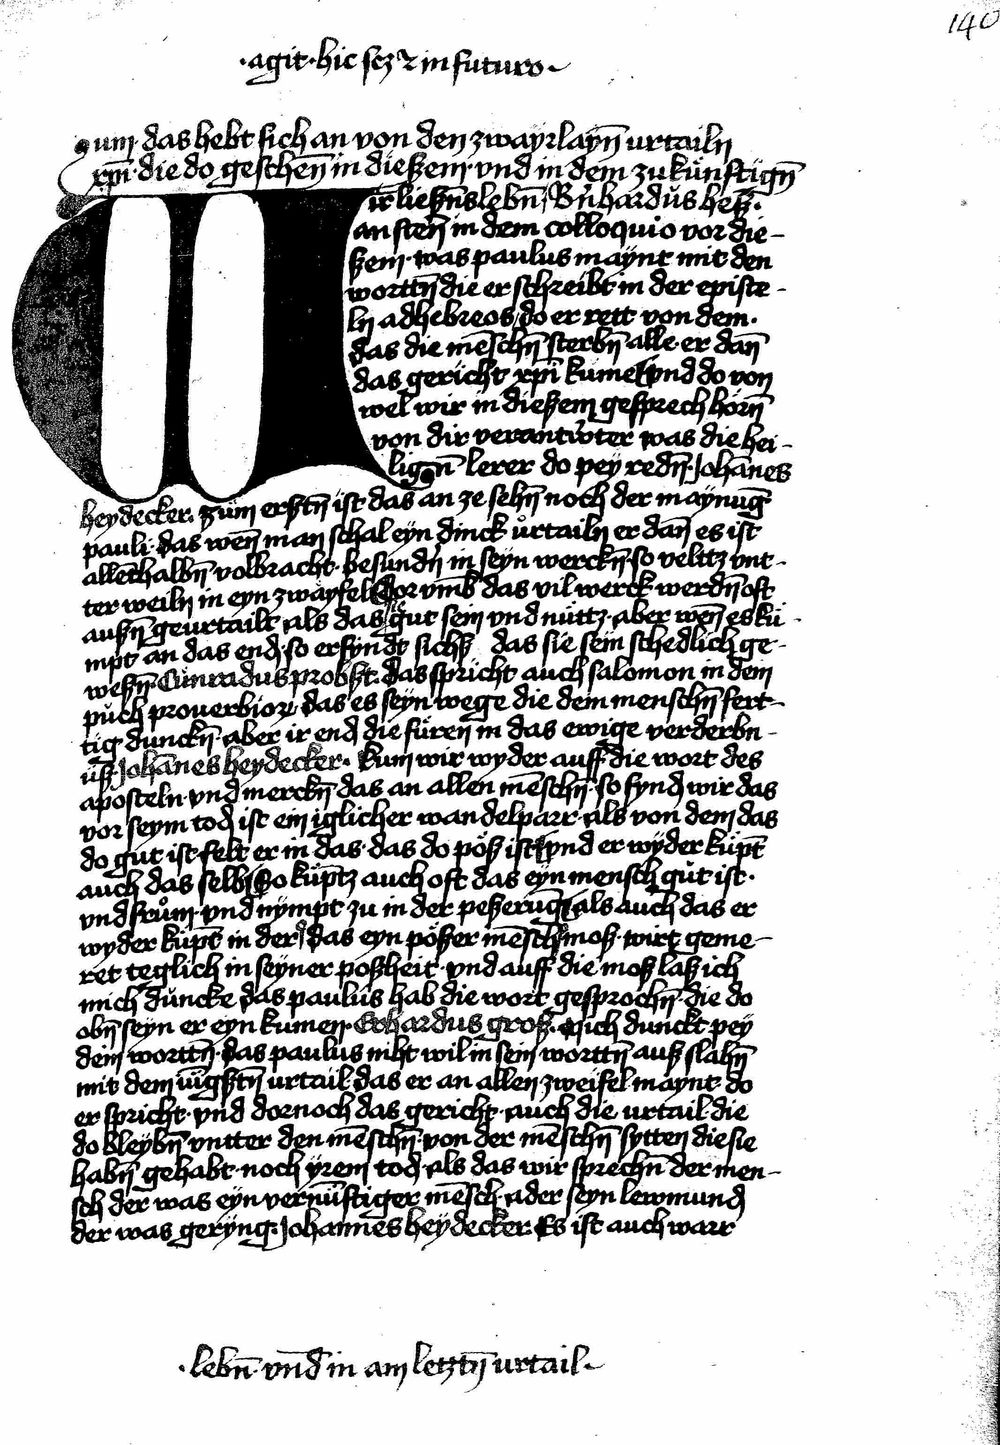 140
·agit·hic sez in futuro·
zum· das hebt sich an von den zwayrlayn̄ urtailn
xpī·die do geschen̄ in dießem·vnd in dem zukünftign̄
Wir ließn̄s lebn̄ Bn̄hardus heß·
an sten̄ in dem colloquio vor die-
ßem·was paulus maynt mit den
wortn̄ die er schreibt in der episte-
ln adhebreos do er rett von dem·
das die mēschn̄ sterbn̄ alle·er dan̄
das gericht xpī kume vnd do von
wel wir in dießem gesprech hörn̄
von dir verantwter was die hei-
lign̄ lerer do pey redn̄·Johānes
heydecker· zum erstn̄ ist das an ze sehn̄ noch der maynūg
pauli·das wen̄ man schal eyn dinck urtailn er dan̄ es ist
allethalbn̄ volbracht·besundn̄ in seyn werckn̄·so veltz vnt-
ter weiln in eyn zwayfel Dor vmb das vil werck werdn̄ oft
außn̄ geurtailt als das gut sein vnd nütz·aber wen̄ es kü-
mpt an das end·so erfyndt sichß das sie sein schedlich ge-
weßn̄·Cunradus probst·das spricht auch salomon in dem
puch proverbior·das es seyn wege die dem menschn̄ fert-
tig dunckn̄·aber ir end die füren in das ewige verderbn-
üß·Johānes heydecker· kum wir wyder auff die wort des
aposteln·vnd merckn̄ das an allen mēschn̄·so fynd wir das
vor seym tod ist ein iglicher wandelparr·als von dem das
do gut ist·felt er in das·das do pöß ist vnd er wyder küpt
auch das selb So küptz auch oft das eyn mensch gut ist·
vnd frum·vnd nympt zu in der peßerūg als auch das er
wyder küpt in der das eyn pößer mēsch moß·wirt geme-
ret teglich in seyner poßheit·vnd auff die moß laß ich
mich duncke das paulus hab die wort gesprochn̄·die do
obn̄ seyn er eyn kumen·Erhardus groß·mich dunckt pey
dein wortn̄·das paulus niht wil in sein wortn̄ auß slahn̄
mit dem iūgstn̄ urtail·das er an allen zweifel maynt·do
er spricht·vnd dornoch das gericht·auch die urtail·die
do bleybn̄ vntter den mēschn̄·von der mēschn̄ sytten die sie
habn̄ gehabt·noch yrem tod·als das wir sprechn̄ der men-
sch der was eyn vernūftiger mēsch·ader seyn lewmund
der was geryng·Johannes heydecker·Es ist auch warr
·lebn̄ vnd in am letztn̄ urtail·